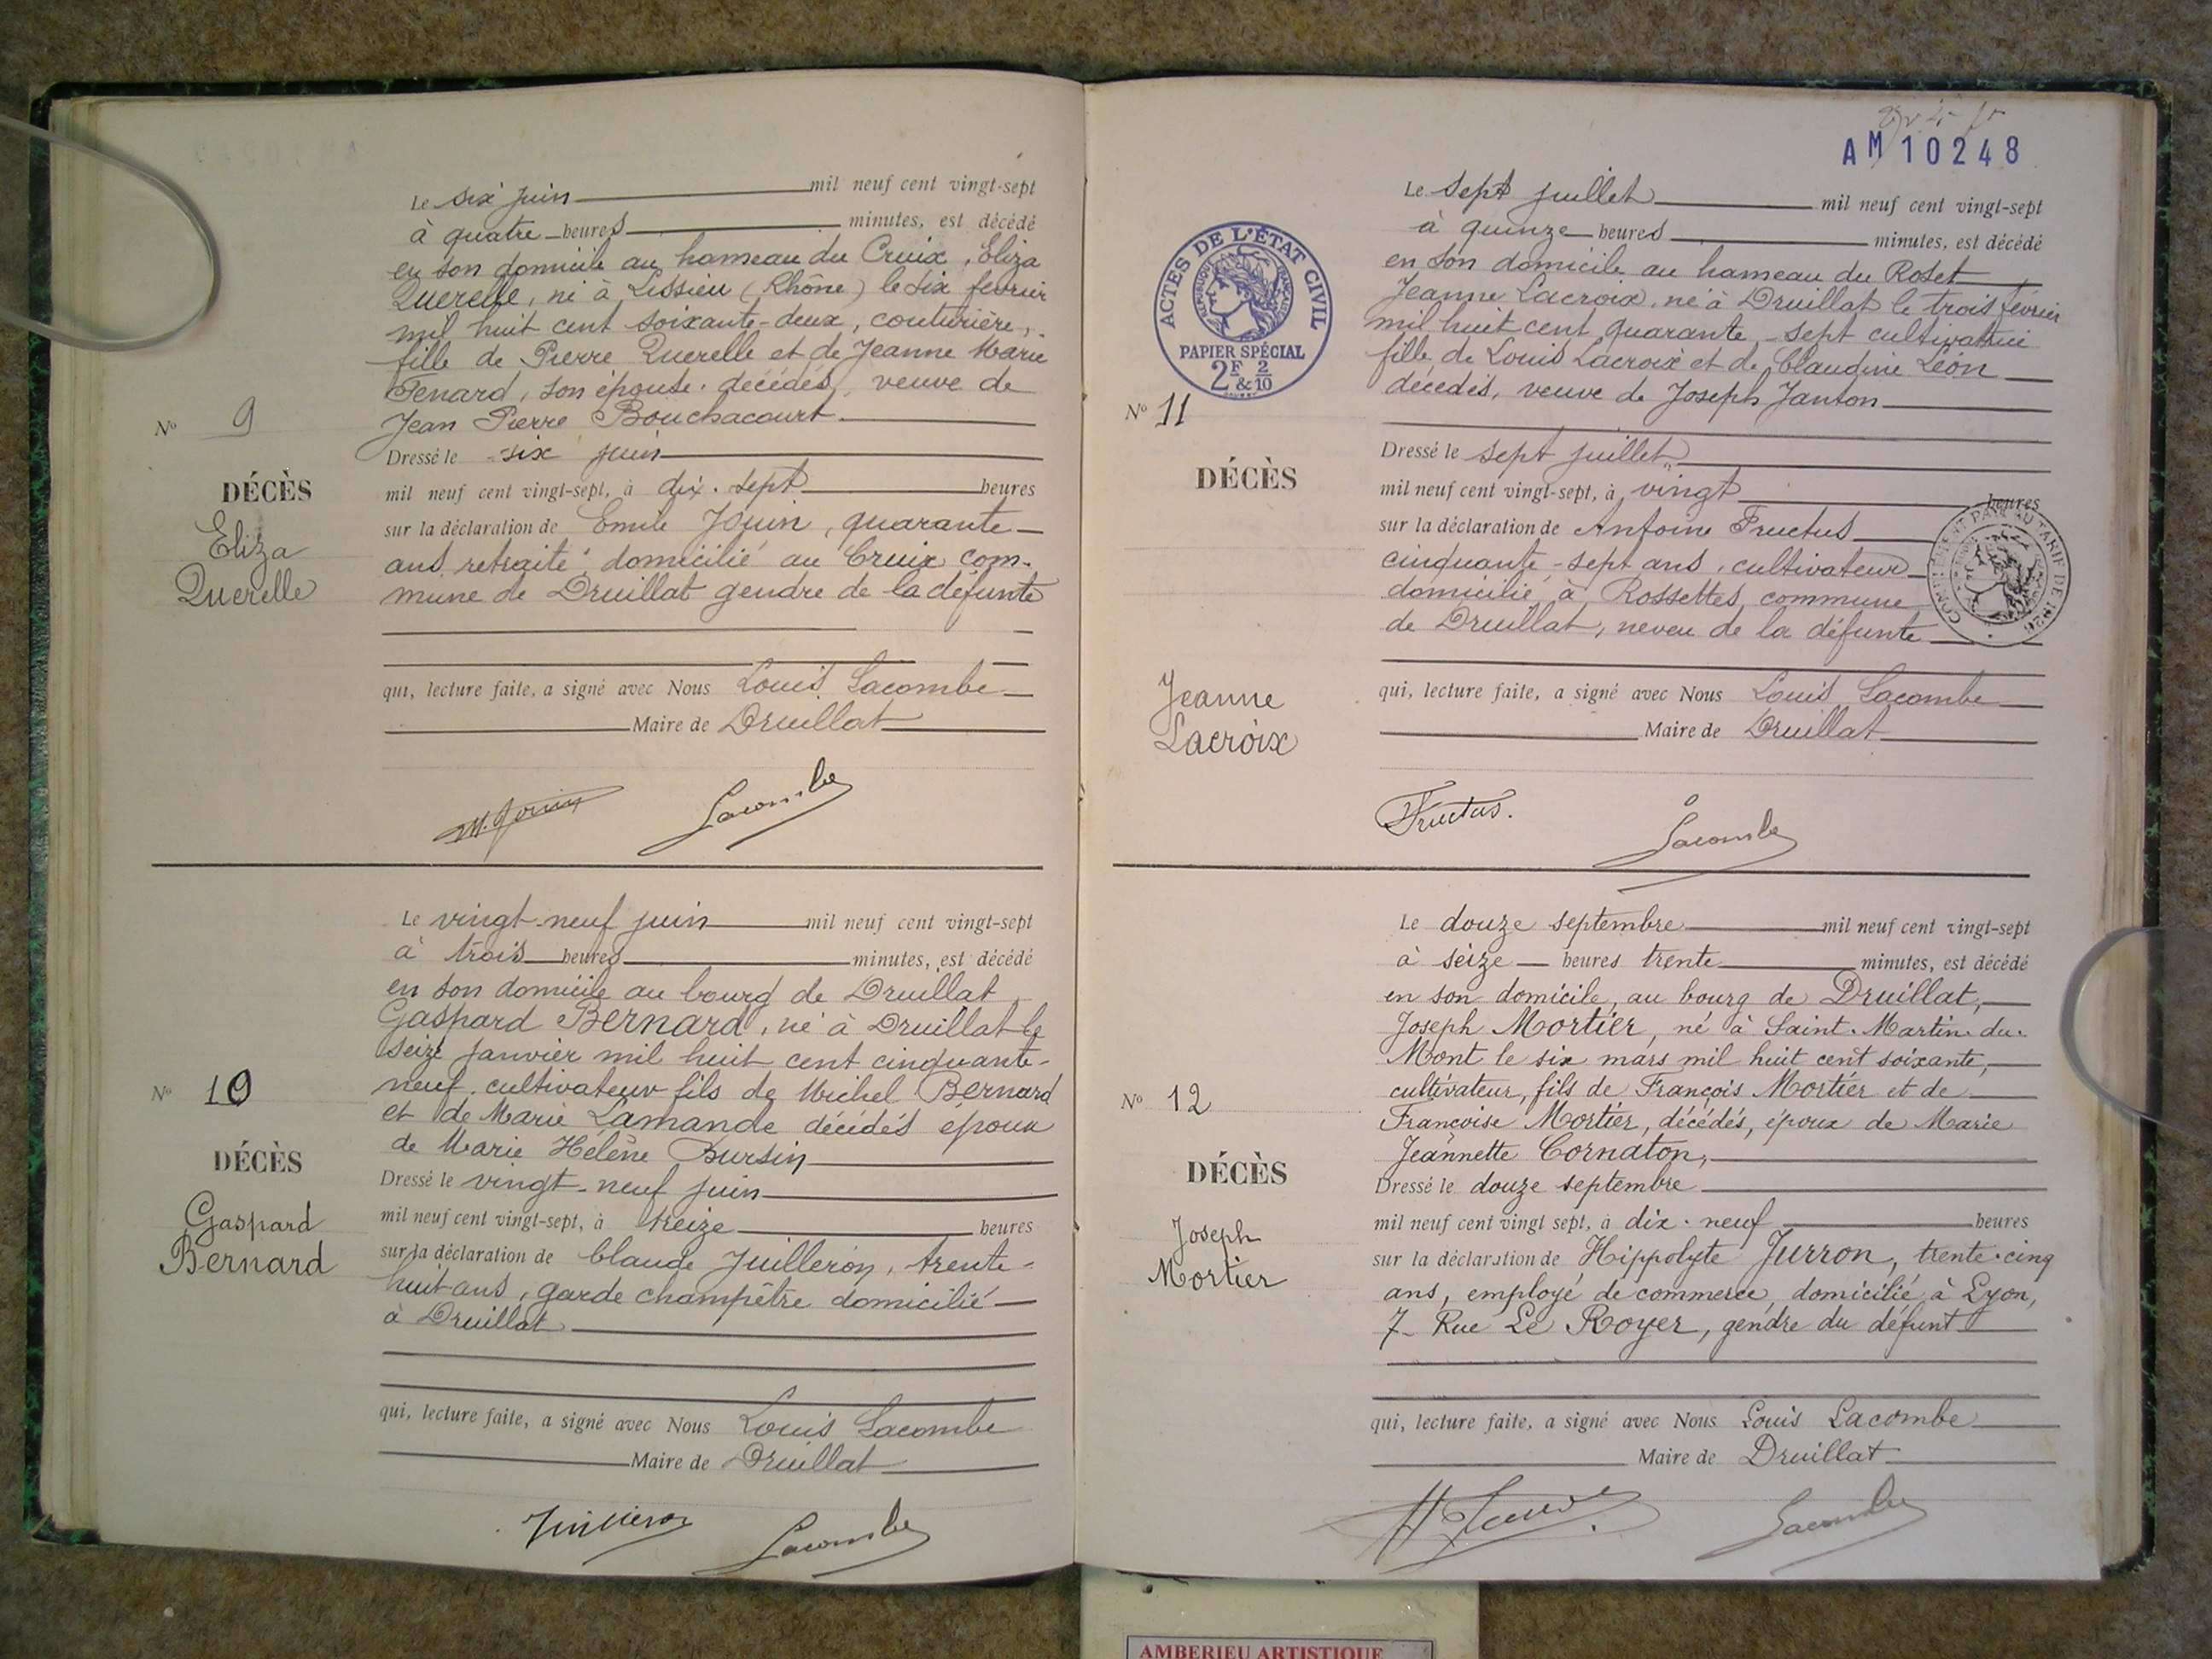 Le six juin mil neuf cent vingt-sept
à quatre heures minutes, est décédé
en son domicile au hameau du Cruix, Eliza
Querelle, né à Lissieu (Rhône) le six fevrier
mil huit cent soixante-deux, couturière,
fille de Pierre Querelle et de Jeanne Marie
Fenard, son épouse. décédés, veuve de
Jean Pierre Bouchacourt
N° 9
Dressé le six juin
DÉCÈS
mil neuf cent vingt-sept, à dix. sept heures
Eliza
Querelle
sur la déclaration de Emile Jouin, quarante
ans retraité domicilié au Cruix com-
mune de Druillat gendre de la défunte
qui, lecture faite, a signé avec Nous Louis Lacombe
Maire de Druillat
M. Jouin Lacombe
Le vingt-neuf juin mil neuf cent vingt-sept
à trois heures minutes, est décédé
en son domicile au bourg de Druillat
Gaspard Bernard, né à Druillat le
seize janvier mil huit cent cinquante-
neuf, cultivateur fils de Michel Bernard
et de Marie Lamande décédés époux
de Marie Hélène Bursin
N° 10
DÉCÈS
Gaspard
Bernard
Dressé le vingt-neuf juin
mil neuf cent vingt-sept, à treize heures
sur la déclaration de Claude Juilleron, trente-
huit ans, garde champêtre domicilié
à Druillat
qui, lecture faite, a signé avec Nous Louis Lacombe
Maire de Druillat
Juilleron Lacombe
AM 10248
ACTES DE L'ÉTAT CIVIL
RÉPUBLIQUE FRANÇAISE
PAPIER SPÉCIAL
2F & 2/10
Le sept juillet mil neuf cent vingt-sept
à quinze heures minutes, est décédé
en son domicile au hameau du Roset
Jeanne Lacroix, né à Druillat le trois février
mil huit cent quarante-sept cultivatrice
fille de Louis Lacroix et de Claudine Léon
décédés, veuve de Joseph Janton
N° 11
DÉCÈS
Jeanne
Lacroix
Dressé le sept juillet
mil neuf cent vingt-sept, à vingt heures
sur la déclaration de Antoine Fructus
cinquante-sept ans, cultivateur
domicilié à Rossettes, commune
de Druillat, neveu de la défunte
COMPLÉMENT PAYÉ AU TARIF DE 1926
qui, lecture faite, a signé avec Nous Louis Lacombe
Maire de Druillat
Fructus. Lacombe
Le douze septembre mil neuf cent vingt-sept
à seize heures trente minutes, est décédé
en son domicile, au bourg de Druillat,
Joseph Mortier, né à Saint-Martin-du-
Mont le six mars mil huit cent soixante,
cultivateur, fils de François Mortier et de
Françoise Mortier, décédés, époux de Marie
Jeannette Cornaton,
N° 12
DÉCÈS
Joseph
Mortier
Dressé le douze septembre
mil neuf cent vingt sept, à dix-neuf heures
sur la déclaration de Hippolyte Jurron, trente-cinq
ans, employé de commerce, domicilié à Lyon,
7- Rue Le Royer, gendre du défunt
qui, lecture faite, a signé avec Nous Louis Lacombe
Maire de Druillat
Lacombe
AMBERIEU ARTISTIQUE